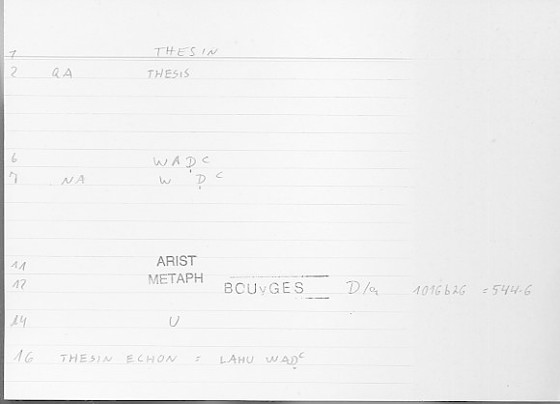 1 THESIN
2 QA THESIS
6 WAḌC
7 NA W ḌC
11 ARIST
12 METAPH BOUyGES D/a 1016b26 = 544.6
14 U
16 THESIN ECHON = LAHU WAḌC